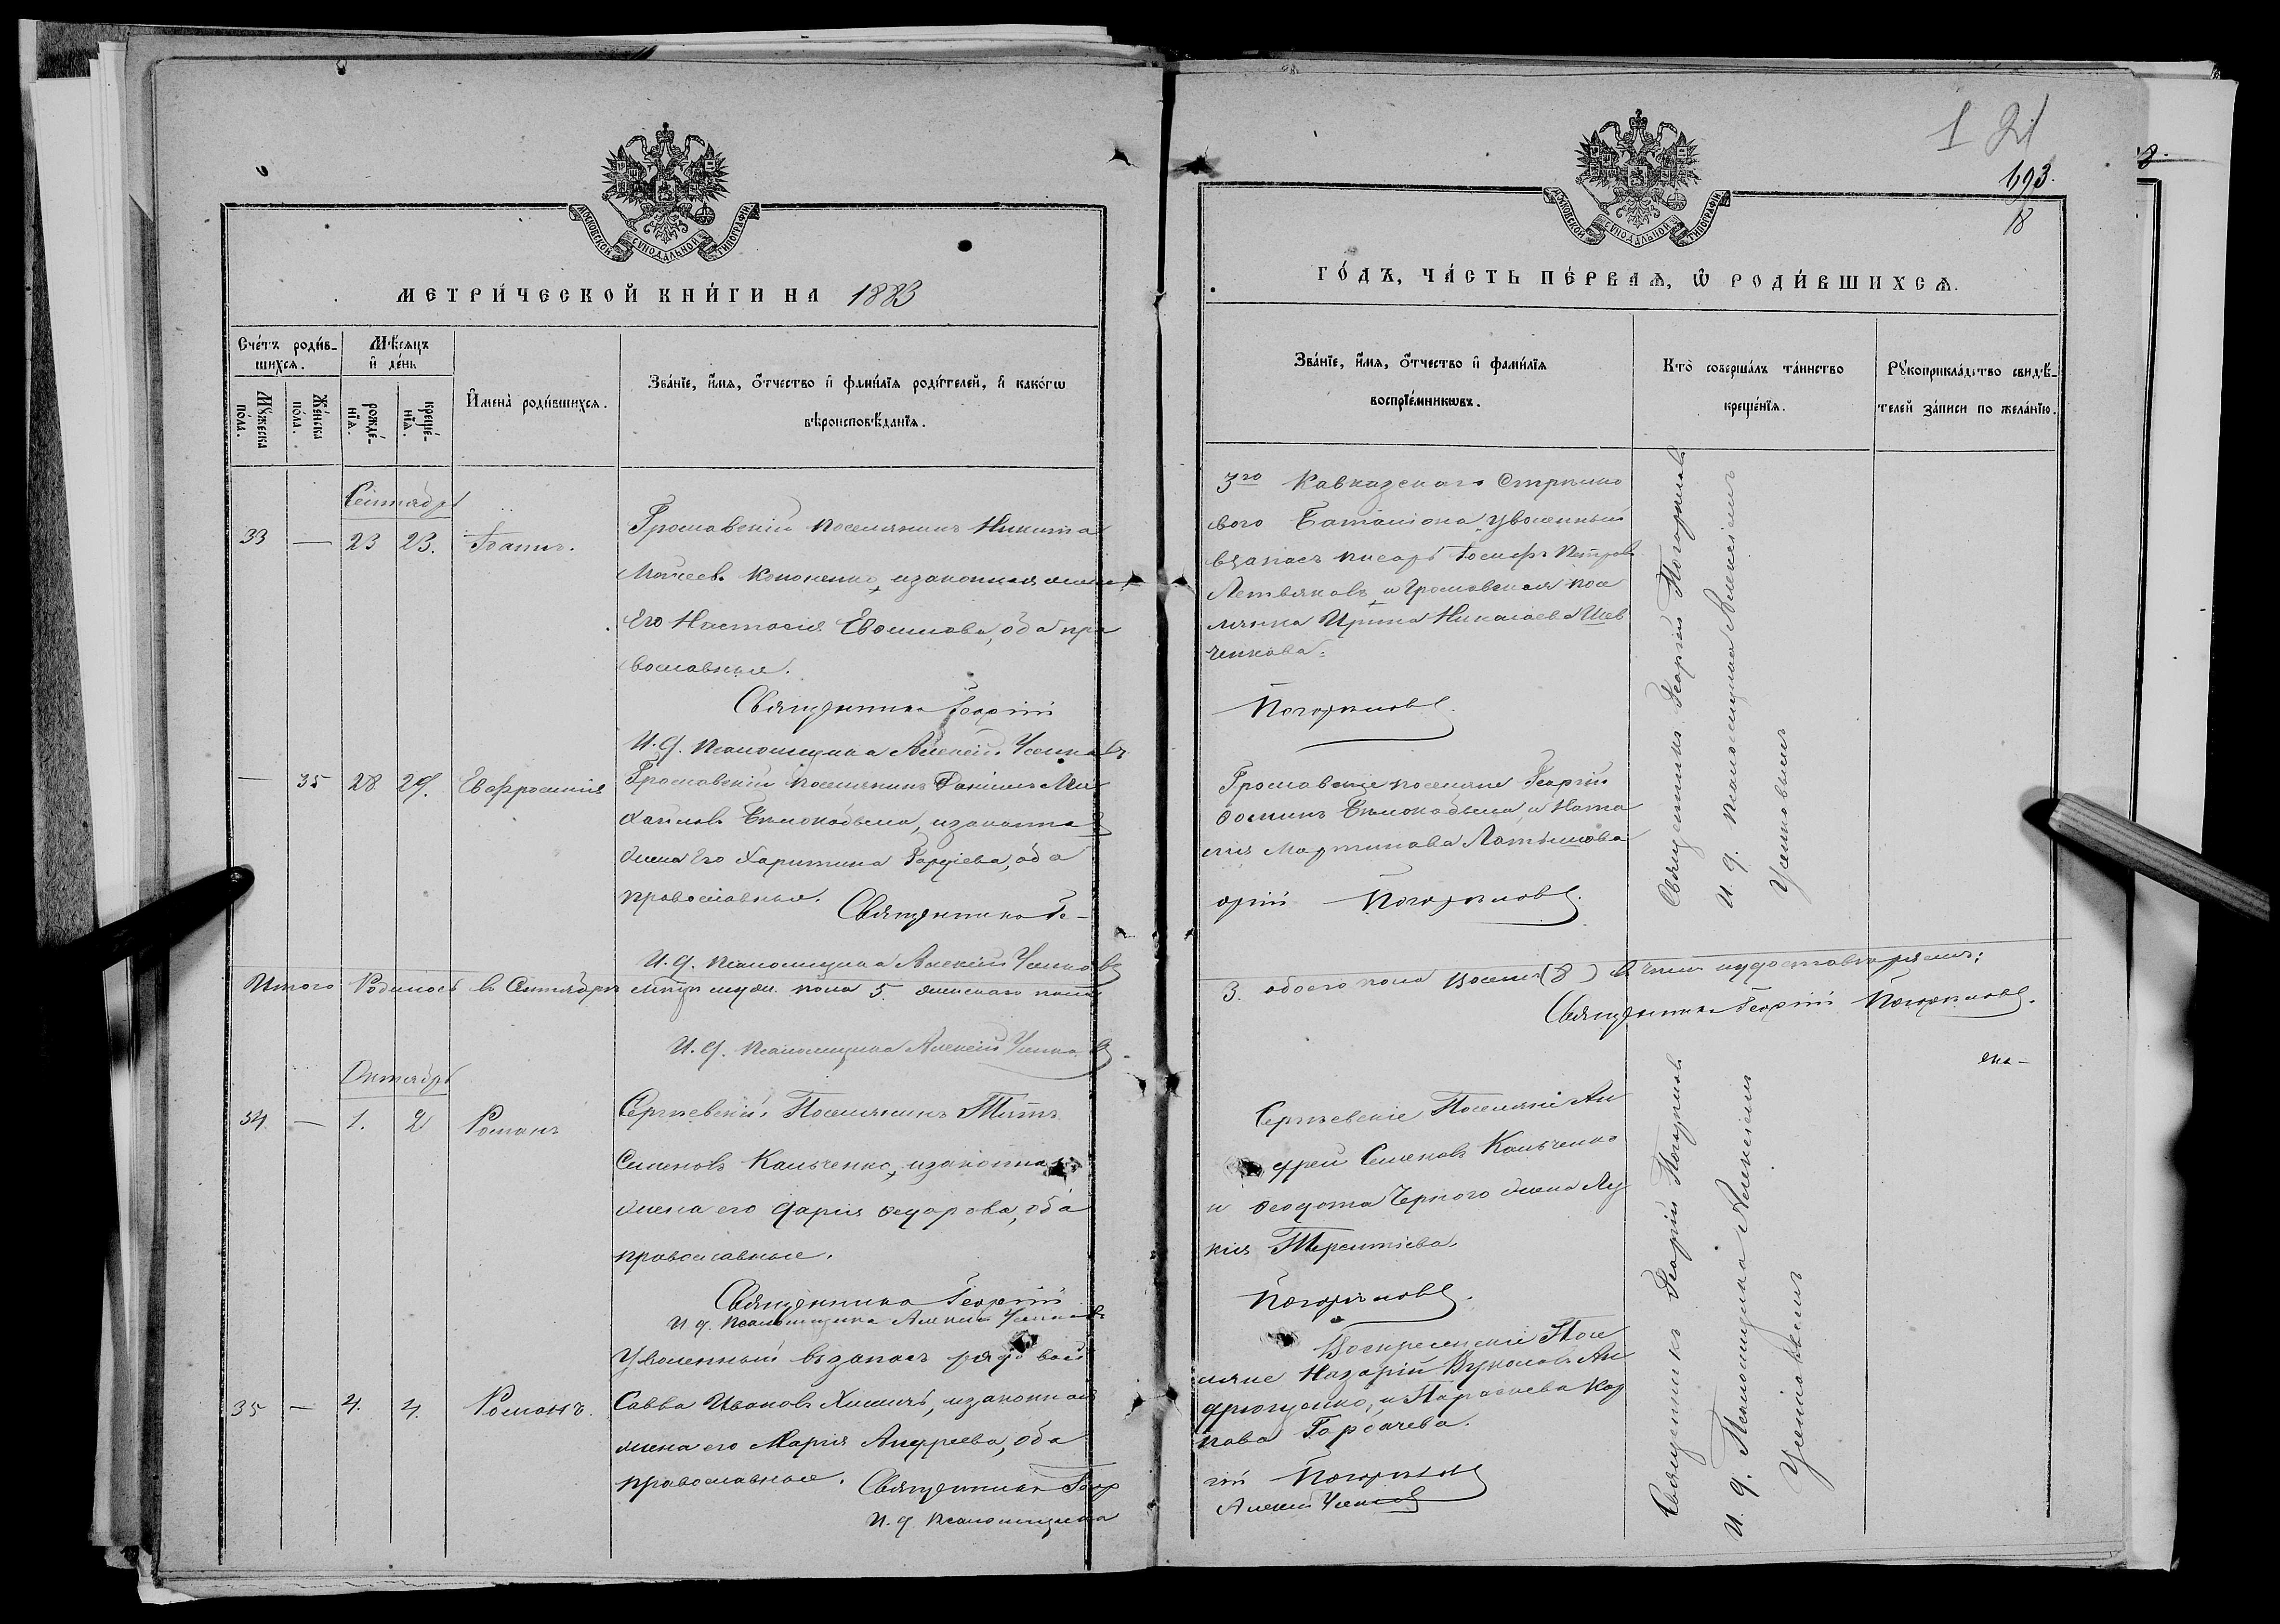 МОСКОВСКОЙ СѴНОДАЛЬНОЙ ТИПОГРАФІИ
МЕТРИ́ЧЕСКОЙ КНИ́ГИ НА 1883
Сче́тъ роди́в-
шихсѧ.
Мѣ́сяцъ
и҆ де́нь
Мꙋ́жеска
по́ла.
Же́нска
по́ла.
рожде́-
нїѧ.
креще́-
нїѧ.
И҆мена̀ роди́вшихсѧ.
Зва́нїе, и҆́мѧ, ѻ҆́тчество и҆ фами́лїѧ роди́телей, и҆ како́гѡ
вѣроисповѣ́данїѧ.
Сентябрь
33 — 23 23. Іоаннъ.
Громавскій поселянинъ Никита
Моисеев. Кононенко, изаконная жена
Его Настасія Евфимова, оба пра
вославные.
Священникъ Георгій
И. д. псаломщика Алексѣй Усенковъ
— 35 28 29. Евфросинія
Громавскій поселянинъ Даніилъ Ми
хайловъ Бѣлокобыла, изаконная
жена Его Харитина Гордіева, оба
православные.
Священникъ Ге-
И. д. псаломщика Алексѣй Усенковъ
Итого Родилось въ Сентябрѣ мѣсяцѣ муж. пола 5. женскаго пола
И. д. псаломщика Алексѣй Усенковъ
Октябрь
34 — 1. 2 Романъ
Сергѣевскій Поселянинъ Титъ
Семеновъ Кальченко, изаконная
жена его Дарія Ѳедорова, оба
православные.
Священникъ Георгій
И д. псаломщика Алексѣй Усенковъ
Уволенный въ запасъ рядовой
35 — 4. 4. Романъ.
Савва Ивановъ Химичъ, изаконная
жена его Марія Андреева, оба
православные.
Священникъ Геор
И. д псаломщика
1 21
693.
18
МОСКОВСКОЙ СѴНОДАЛЬНОЙ ТИПОГРАФІИ
ГО́ДЪ, ЧА́СТЬ ПЕ́РВАѦ, Ѡ҆ РОДИ́ВШИХСѦ.
Зва́нїе, и҆́мѧ, ѻ҆́тчество и҆ фами́лїѧ
воспрїе́мникѡвъ.
Кто̀ соверша́лъ та́инство
креще́нїѧ.
Рꙋкоприкла́дство свидѣ́-
телей за́писи по жела́нїю.
3го Кавказскаго Стрѣлко
ваго Баталіона уволенный
взапасъ писарь Іосифъ Петровъ
Летвяковъ и Громавская посе
лянка Ирина Николаева Шев
ченкова.
Погорѣловъ.
Громавскіе поселяне Георгій
Фоминъ Бѣлокобыла, и Ната
лія Мартинова Латышова
оргій Погорѣловъ.
Священникъ Георгій Погорѣловъ
И. д. псаломщика Алексѣемъ
Усенковымъ
3. обоего пола восемь (8) въ чемъ иудостовѣряемъ:
Священникъ Георгій Погорѣловъ.
Сергѣевскіе Поселяне Ан
дрей Семеновъ Кальченко
и Ѳеодота Черного жена Лу
кія Терентіева.
Погорѣловъ.
Воскресенскіе Посе
ляне Назарій Вуколовъ Ан
дрющенко, и Параскева Кар
пова Горбачева.
гій Погорѣловъ
Алексѣй Усенковъ
Священникъ Георгій Погорѣловъ
И. д. Псаломщика Алексѣемъ
Усенковымъ